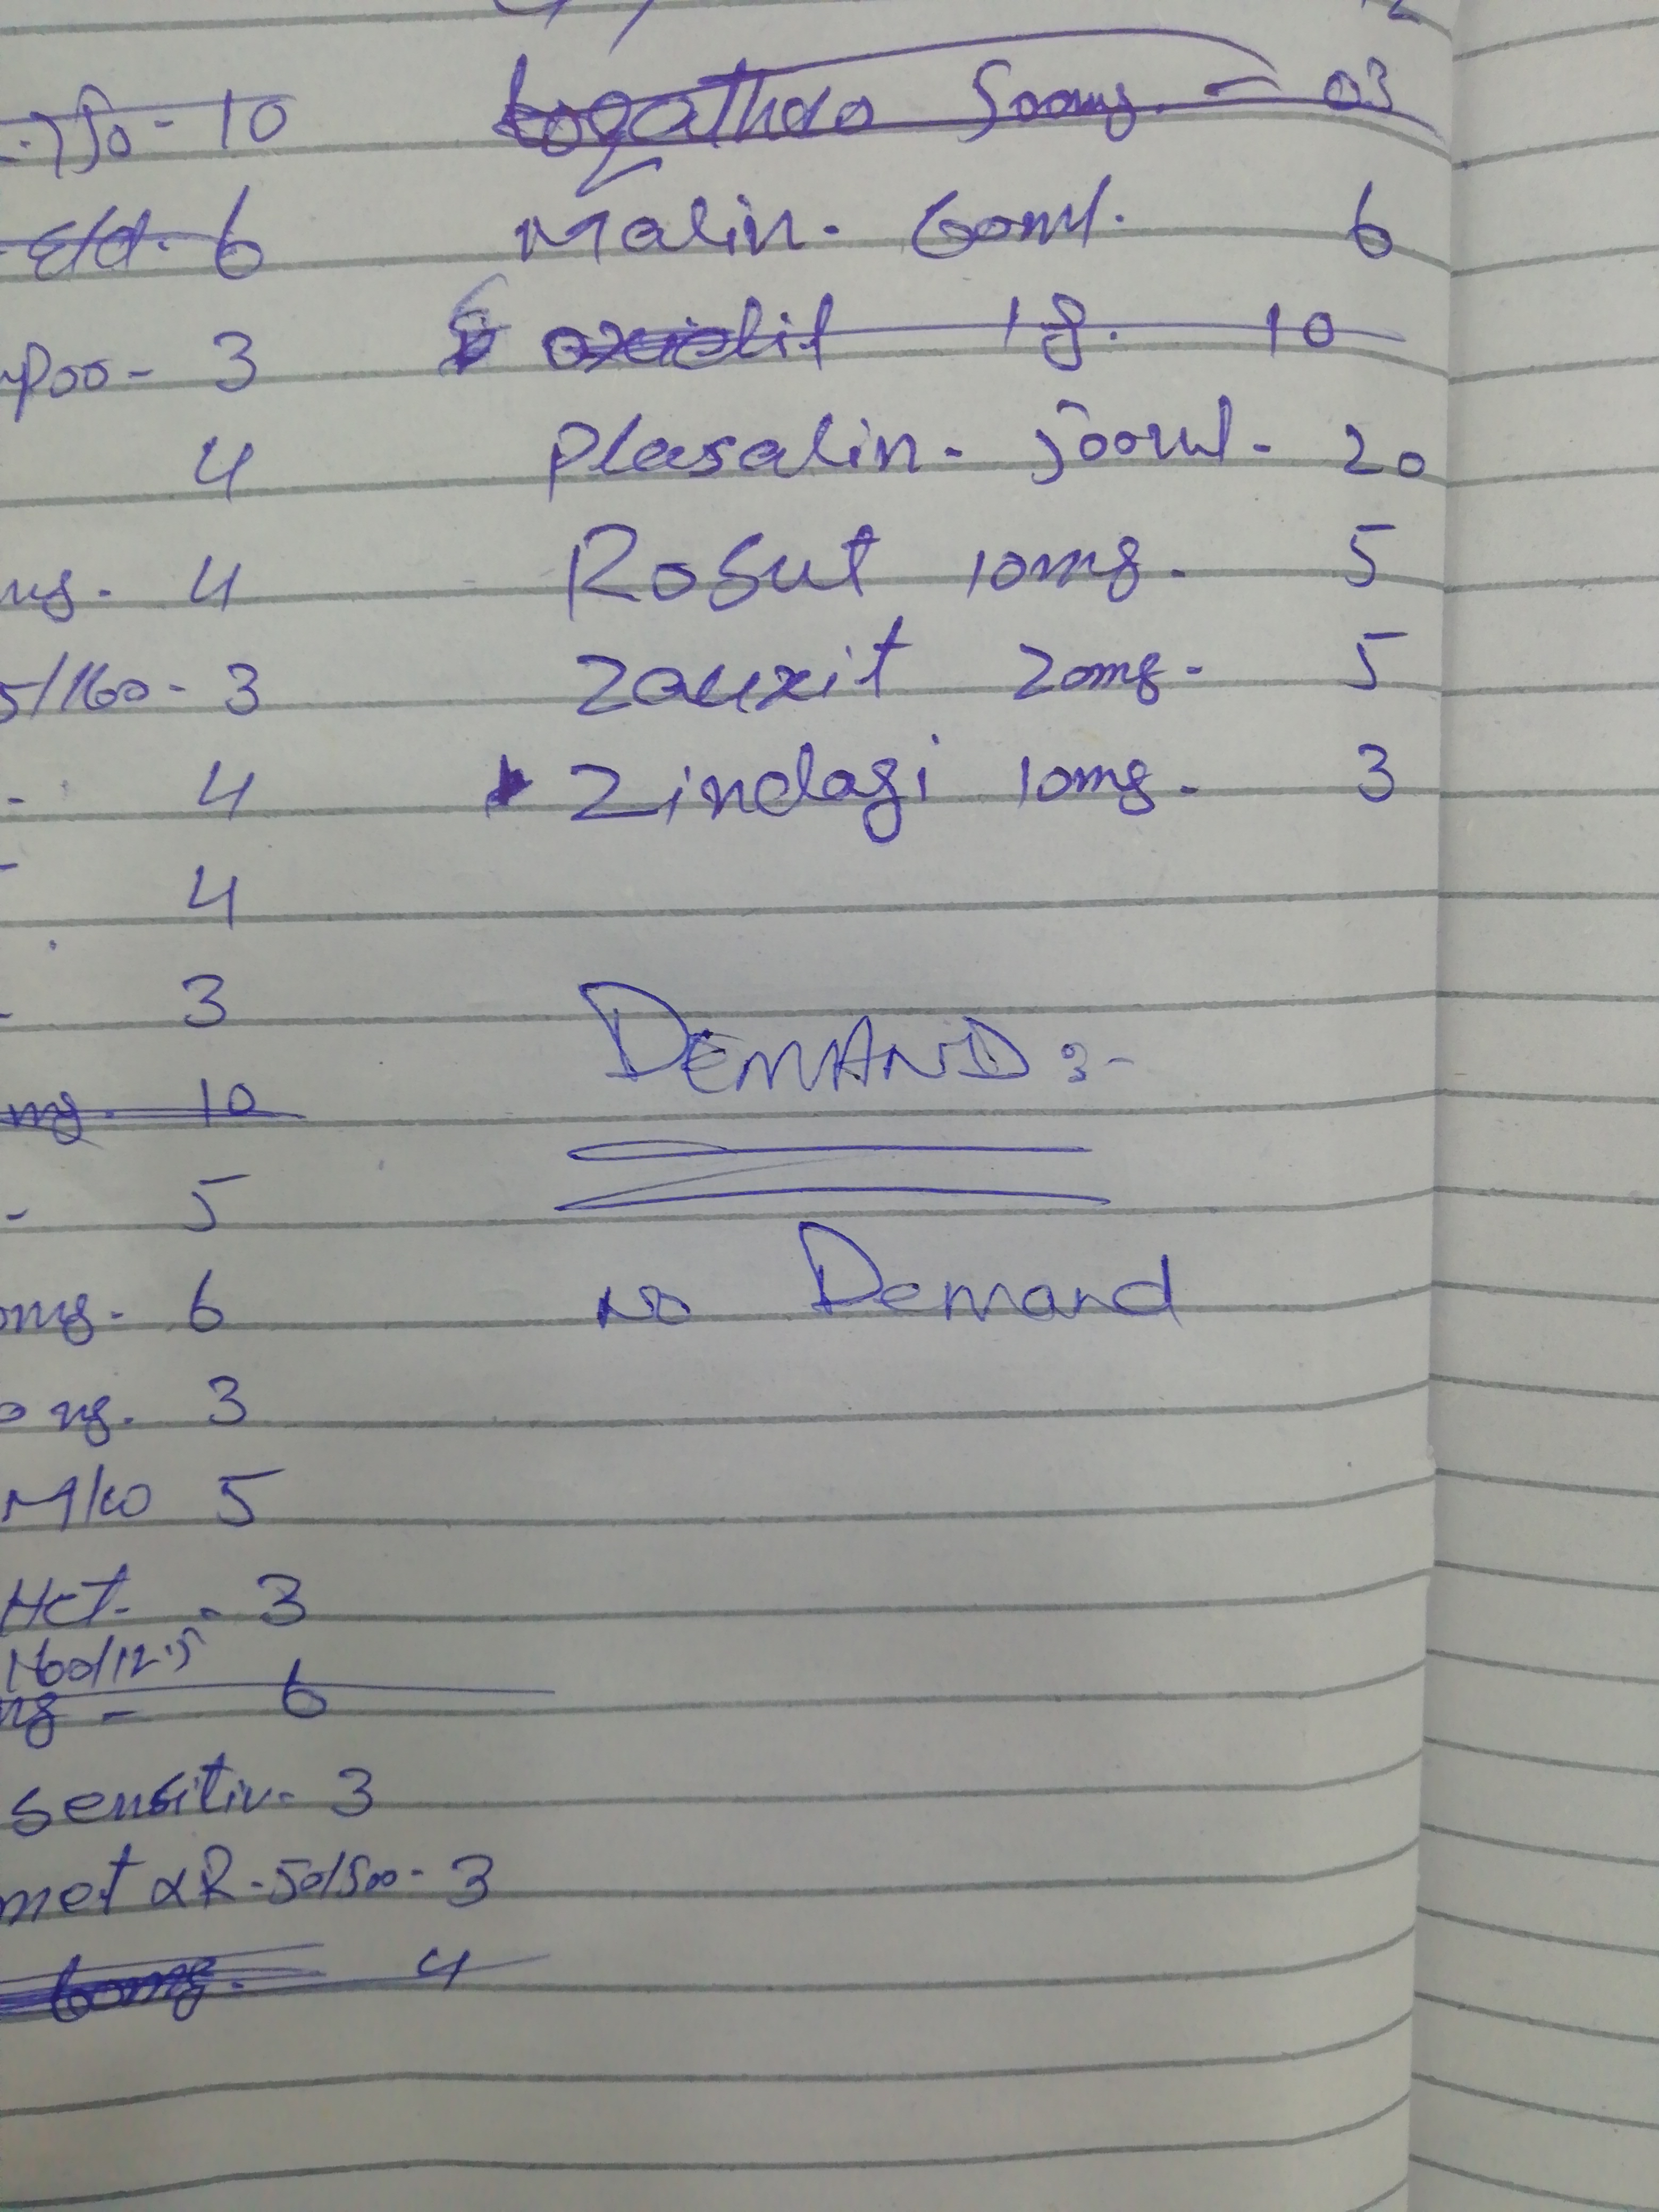 10
E/d. 6
poo - 3
4
mg. 4
5/160 - 3
4
4
3
mg. 10
5
mg. 6
mg. 3
5
HCT - 3
160/12.5
mg - 6
sensitiv - 3
met XR - 50/500 - 3
60mg. 4
500mg. - 03
Malin. 60ml. 6
1g. 10
Plasalin - 500ml - 20
Rosut 10mg. 5
Zauxit 20mg - 5
Zindagi 10mg - 3
DEMAND :-
No Demand